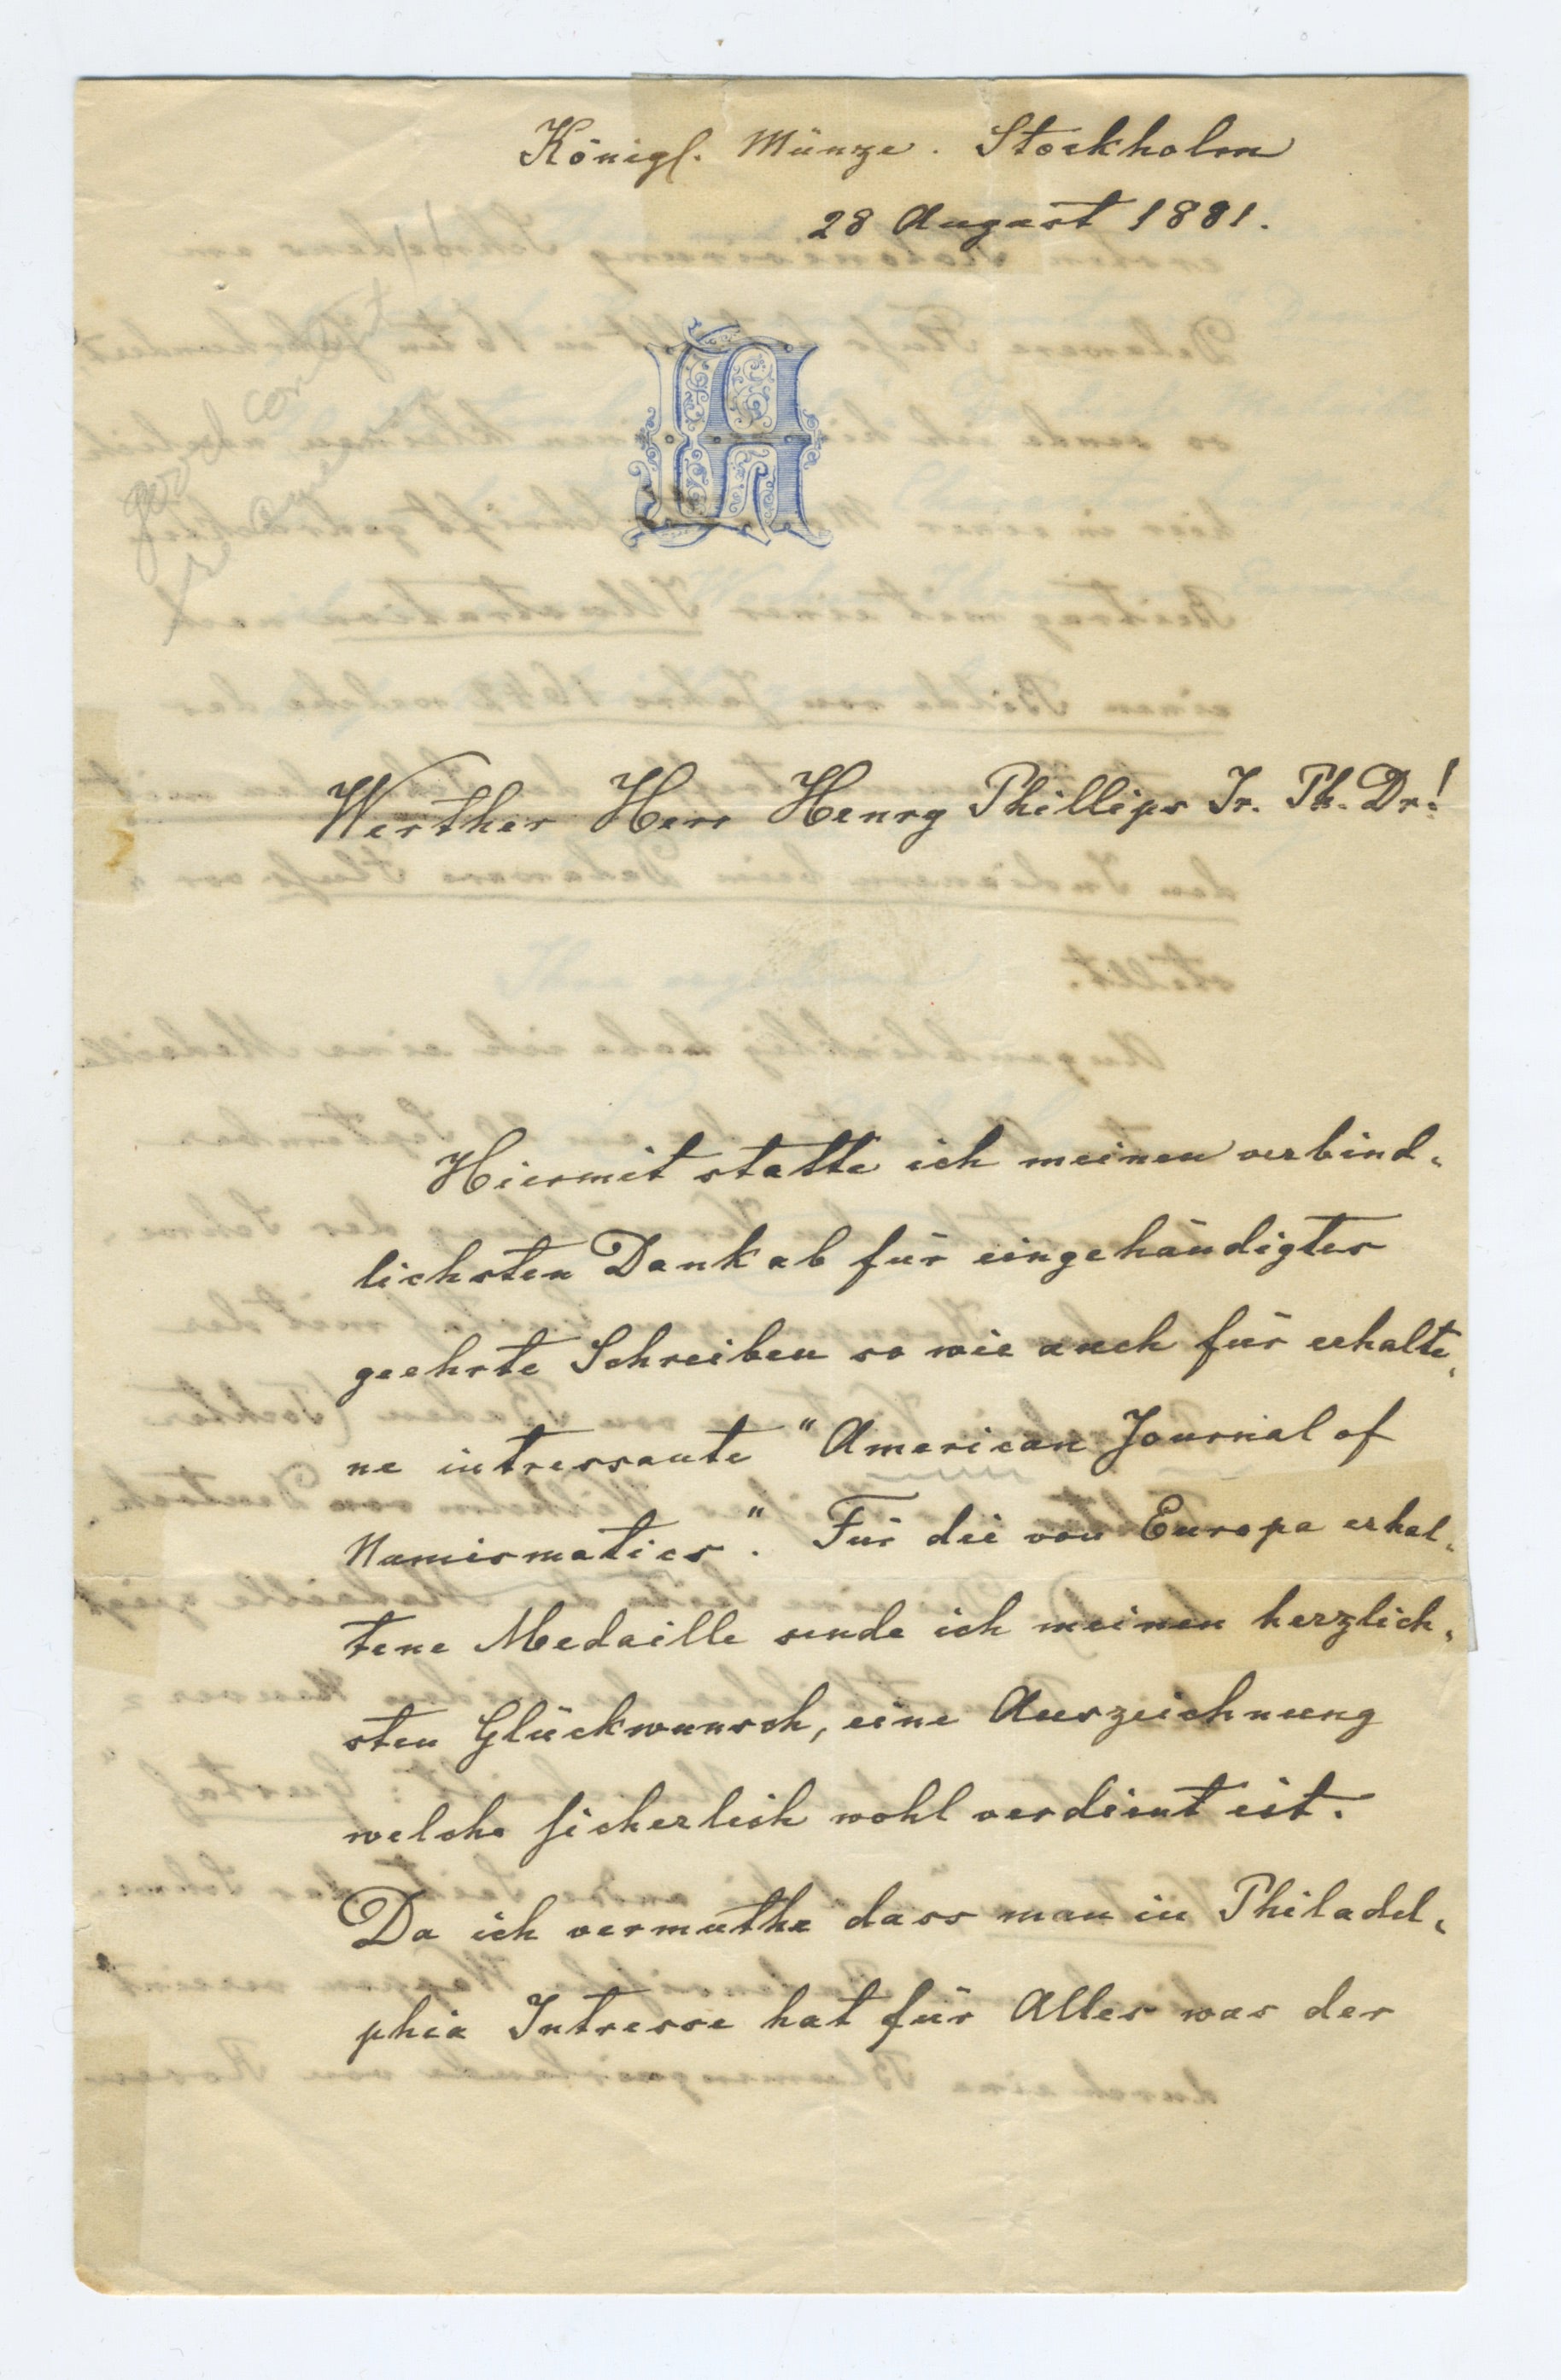 Königl. Münze. Stockholm
28 August 1881.
Werther Herr Henry Phillips Jr. Ph. Dr!
Hiermit statte ich meinen verbind-
lichsten Dank ab für eingehändigtes
geehrte Schreiben so wie auch für erhalte-
ne intressante "American Journal of
Numismatics". Für die von Europa erhal-
tene Medaille sende ich meinen herzlich-
sten Glückwunsch, eine Auszeichnung
welche sicherlich wohl verdient ist.
Da ich vermuthe dass man in Philadel-
phia Intresse hat für Alles was der